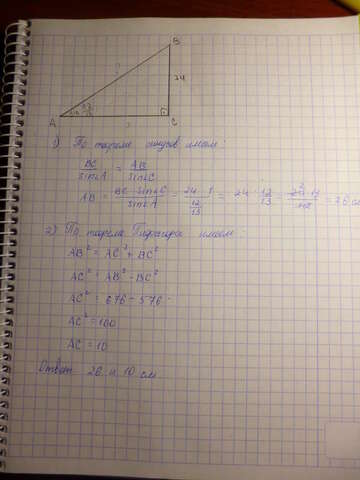 B
?
24
A sin 12/13
C
?
1) По теореме синусов имеем:
BC/sin∠A = AB/sin∠C
AB = BC · sin∠C / sin∠A = 24 · 1 / 12/13 = 24 : 12/13 = 24 · 13 / 12 = 26 см
2) По теореме Пифагора имеем:
AB² = AC² + BC²
AC² = AB² - BC²
AC² = 676 - 576
AC² = 100
AC = 10
Ответ 26 и 10 см